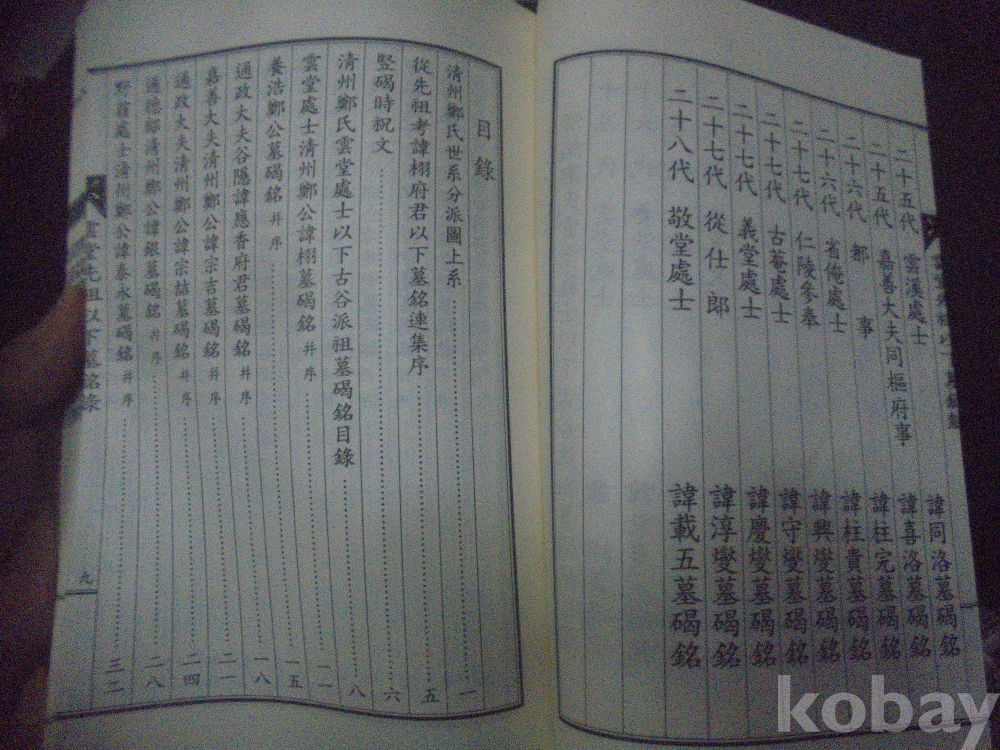 二十五代 雲溪處士 諱同洛墓碣銘
二十五代 嘉善大夫同樞府事 諱喜洛墓碣銘
二十六代 都事 諱柱完墓碣銘
二十六代 省俺處士 諱柱貴墓碣銘
二十七代 仁陵參奉 諱興燮墓碣銘
二十七代 古菴處士 諱守燮墓碣銘
二十七代 義堂處士 諱慶燮墓碣銘
二十七代 從仕郎 諱淳燮墓碣銘
二十八代 敬堂處士 諱載五墓碣銘
目錄
清州鄭氏世系分派圖上系 一
從先祖考諱栩府君以下墓銘連集序 五
竪碣時祝文 六
清州鄭氏雲堂處士以下古谷派祖墓碣銘目錄 八
雲堂處士清州鄭公諱栩墓碣銘 并序 一一
養浩鄭公墓碣銘 并序 一五
通政大夫谷隱諱應香府君墓碣銘 并序 一八
嘉善大夫清州鄭公諱宗吉墓碣銘 并序 二一
通政大夫清州鄭公諱宗喆墓碣銘 并序 二四
通德郎清州鄭公諱銀墓碣銘 并序 二八
處士清州鄭公諱泰永墓碣銘 并序 三二
雲堂先祖以下墓銘錄
九
kobay